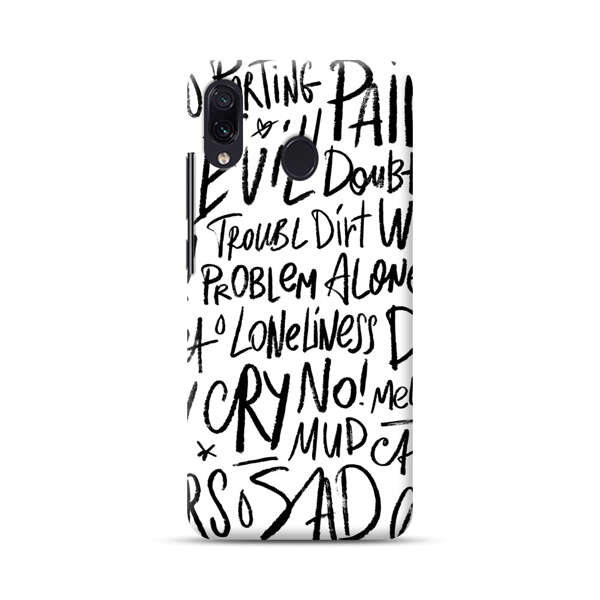 PORTING PAI
EVIL DOUBT
TROUBL DIRT W
PROBLEM ALONE
A LONELINESS D
CRY NO! MEL
MUD CA
RS SAD